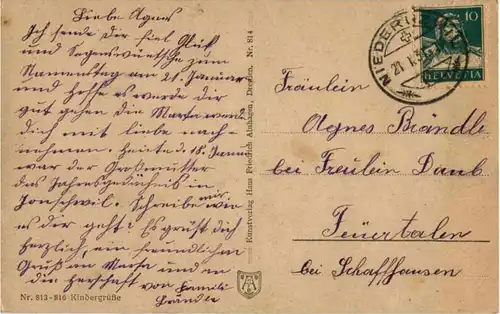 Liebe Agnes
Ich sende dir viel Glück
und Segenswünsche zum
Namenstag am 21. Januar
und hoffe es werde dir
gut gehen die Marta werde
dich mit Liebe
Heute d. 18. Jan.
war der Großmutter
das Jahresgedächtnis in
Jonschwil. Schreibe mir
wie es dir geht? Es grüßt dich
herzlich, ein freundlichen
Gruß an Marta und an
die Herschaft von Famili
Brändle
Nr. 813-816 Kindergrüße
Kunstverlag Hans Friedrich Abshagen, Dresden, Nr. 814
10
HELVETIA
NIEDER
21. I.
Fräulein
Agnes Brändle
bei Freulein Daub
Feürtalen
bei Schaffhausen